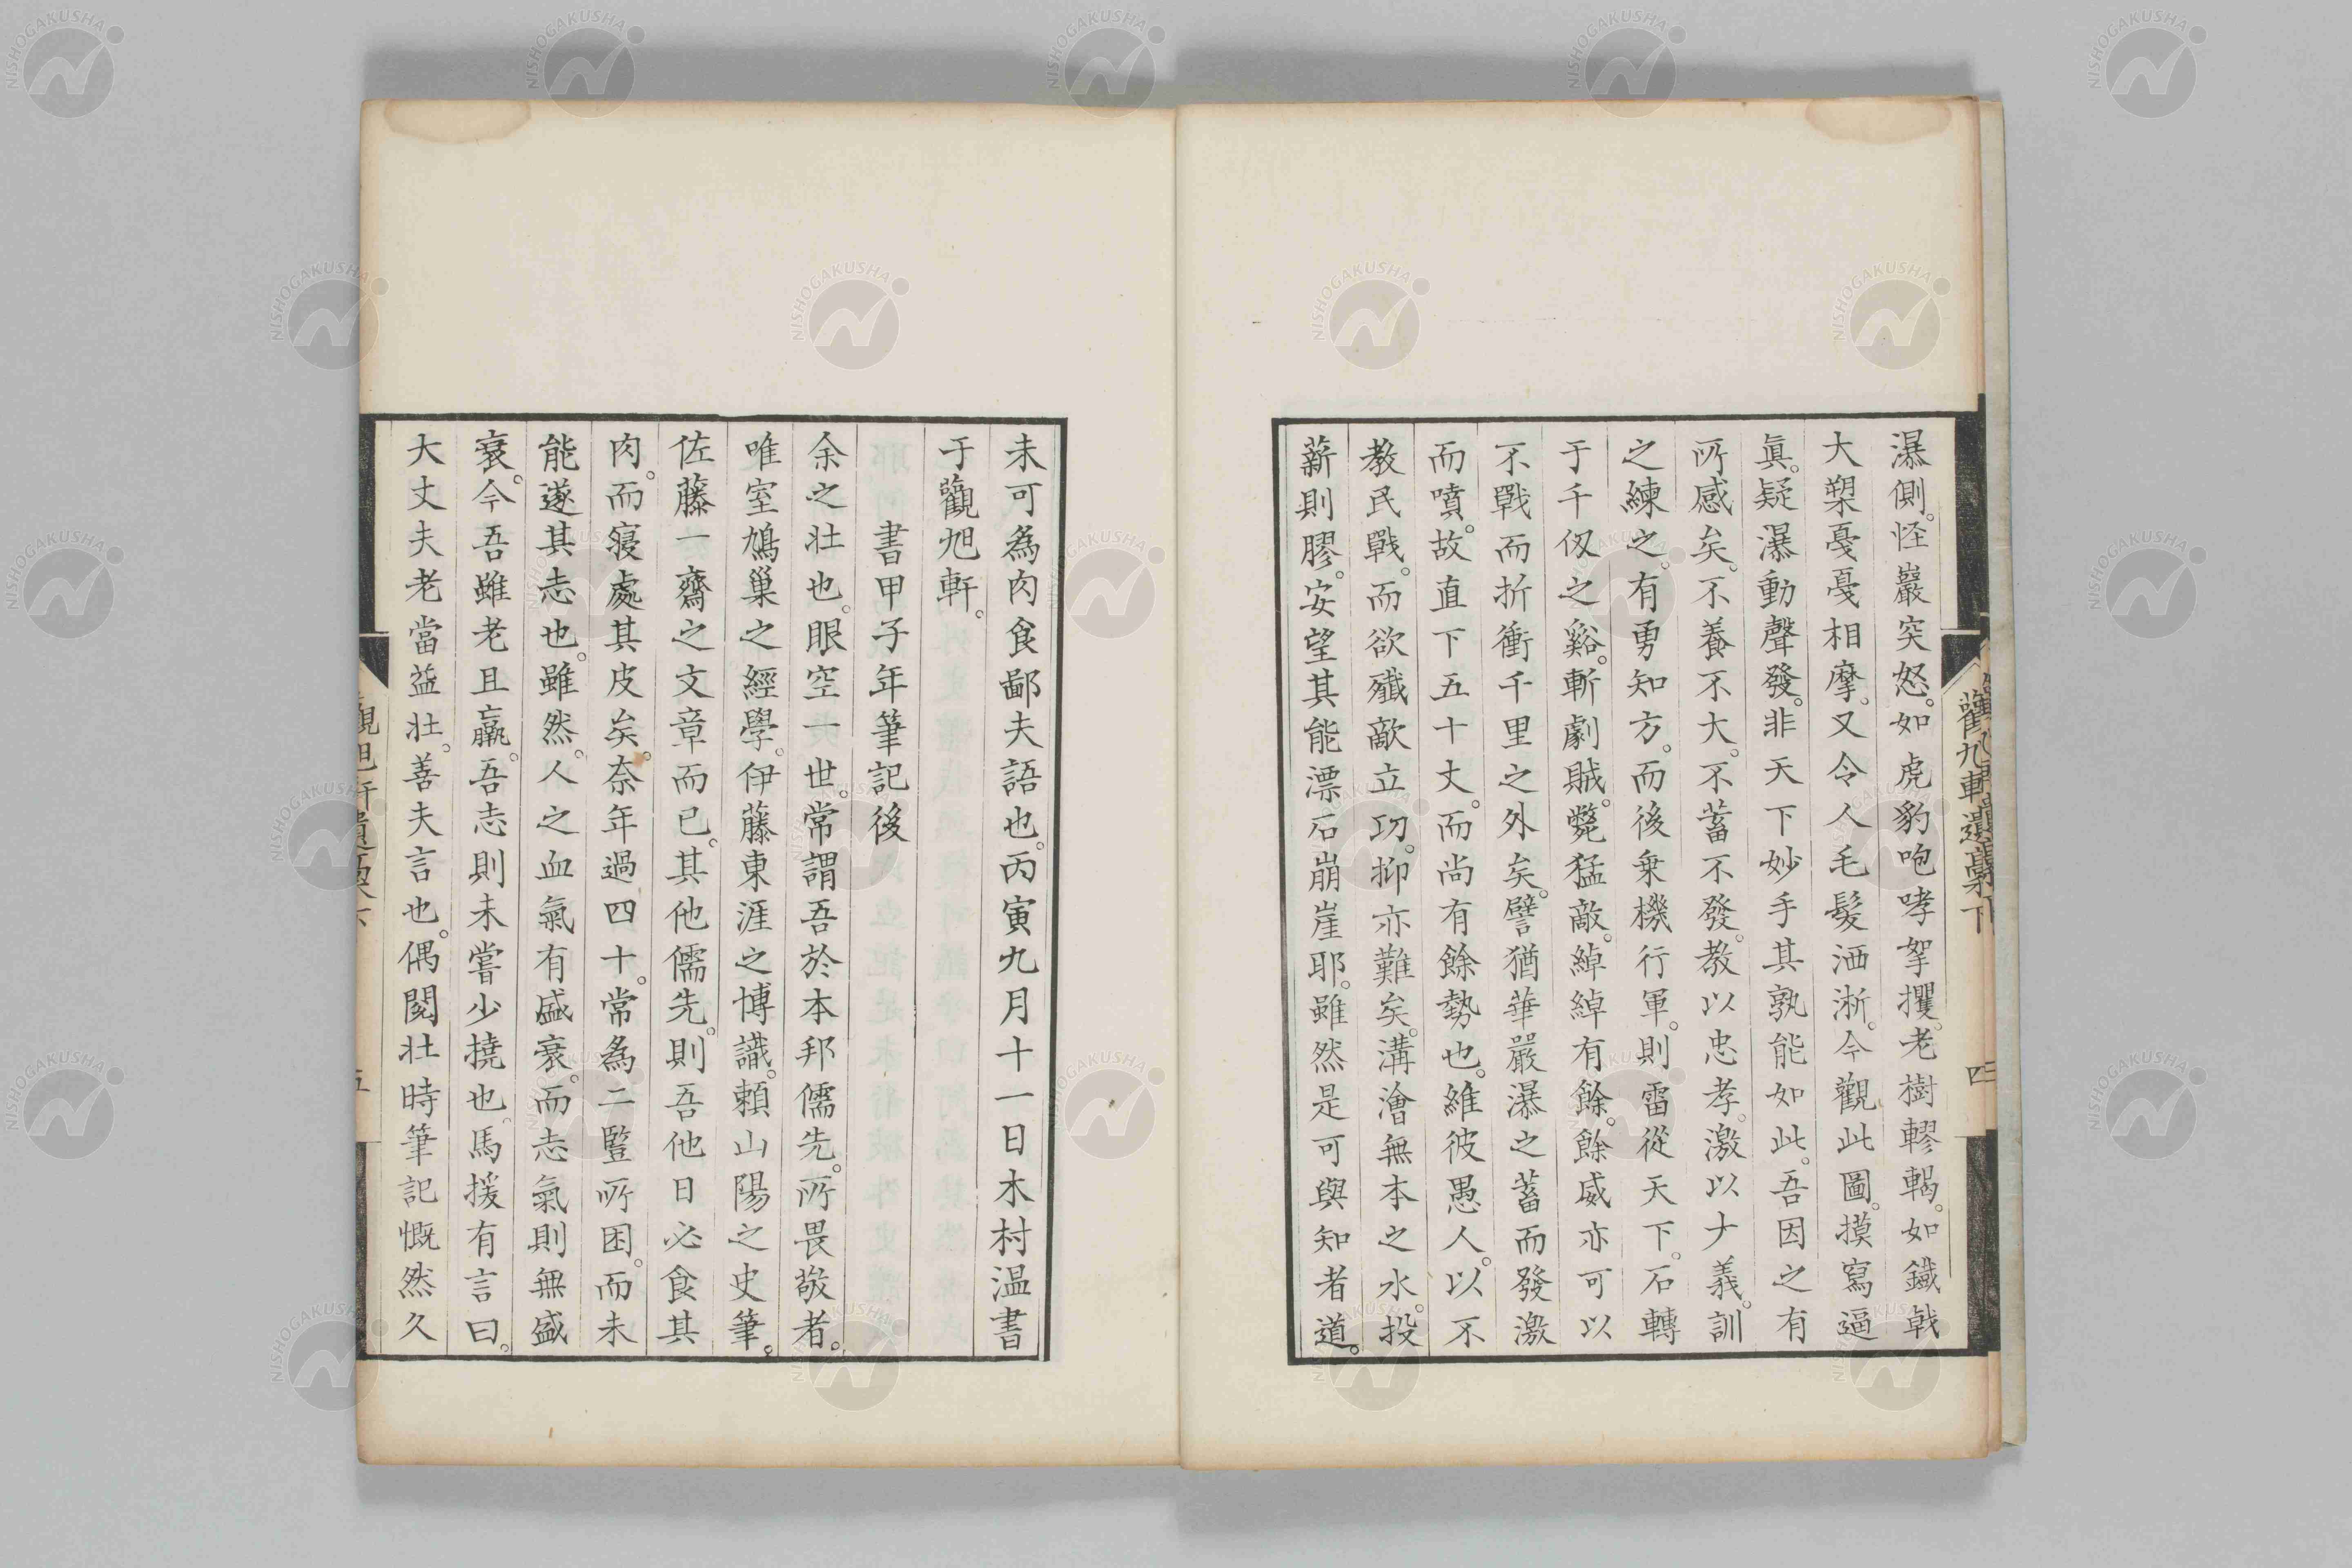 瀑側。怪巖突怒。如虎豹咆哮挐攫。老樹轇轕。如鐵戟
大槊戛戛相摩。又令人毛髮洒淅。今觀此圖。摸寫逼
眞。疑瀑動聲發。非天下妙手其孰能如此。吾因之有
所感矣。不養不大。不蓄不發。教以忠孝。激以大義。訓
之練之。有勇知方。而後乗機行軍。則雷從天下。石轉
于千仭之谿。斬劇賊。斃猛敵。綽綽有餘。餘威亦可以
不戰而折衝千里之外矣。譬猶華嚴瀑之蓄而發激
而噴。故直下五十丈。而尚有餘勢也。維彼愚人。以不
教民戰。而欲殲敵立功。抑亦難矣。溝澮無本之水。投
薪則膠。安望其能漂石崩崖耶。雖然是可與知者道。
觀旭軒遺稾下
四
未可為肉食鄙夫語也。丙寅九月十一日木村温書
于觀旭軒。
書甲子年筆記後
余之壮也。眼空一世。常謂吾於本邦儒先。所畏敬者。
唯室鳩巢之經學。伊藤東涯之博識。賴山陽之史筆。
佐藤一齋之文章而已。其他儒先。則吾他日必食其
肉。而寢處其皮矣。奈年過四十。常為二豎所困。而未
能遂其志也。雖然。人之血氣有盛衰。而志氣則無盛
衰。今吾雖老且羸。吾志則未嘗少撓也。馬援有言曰。
大丈夫老當益壮。善夫言也。偶閱壮時筆記慨然久
五
NISHOGAKUSHA